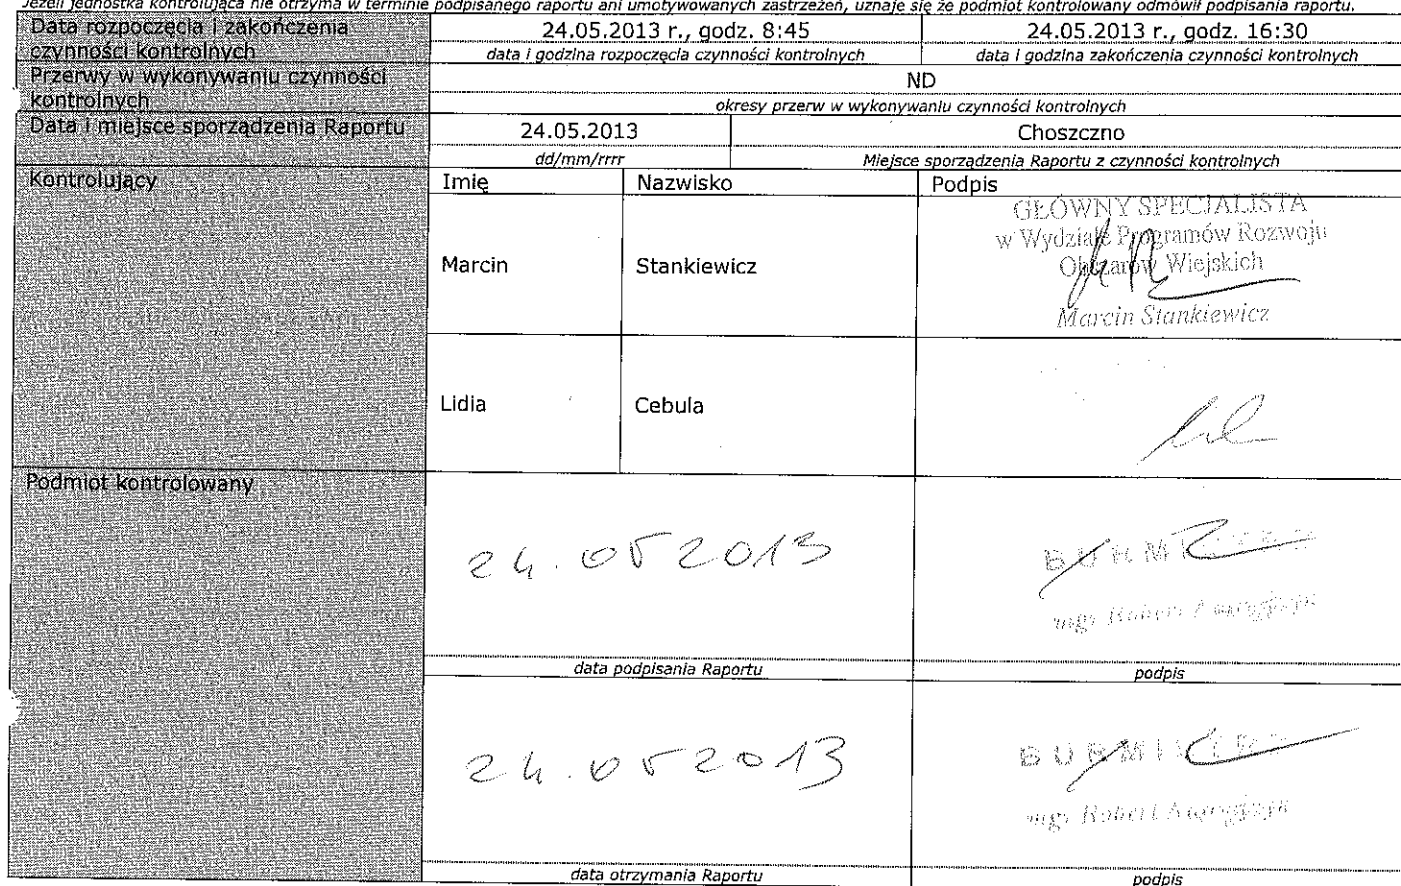 Jeżeli jednostka kontrolująca nie otrzyma w terminie podpisanego raportu ani umotywowanych zastrzeżeń, uznaje się że podmiot kontrolowany odmówił podpisania raportu.
Data rozpoczęcia i zakończenia czynności kontrolnych
24.05.2013 r., godz. 8:45
24.05.2013 r., godz. 16:30
data i godzina rozpoczęcia czynności kontrolnych
data i godzina zakończenia czynności kontrolnych
Przerwy w wykonywaniu czynności kontrolnych
ND
okresy przerw w wykonywaniu czynności kontrolnych
Data i miejsce sporządzenia Raportu
24.05.2013
Choszczno
dd/mm/rrrr
Miejsce sporządzenia Raportu z czynności kontrolnych
Kontrolujący
Imię
Nazwisko
Podpis
GŁÓWNY SPECJALISTA
w Wydziale Programów Rozwoju
Obszarów Wiejskich
Marcin
Stankiewicz
Marcin Stankiewicz
Lidia
Cebula
Podmiot kontrolowany
24.05 2013
BURMISTRZ
mgr Robert
data podpisania Raportu
podpis
24.05 2013
BURMISTRZ
mgr Robert
data otrzymania Raportu
podpis